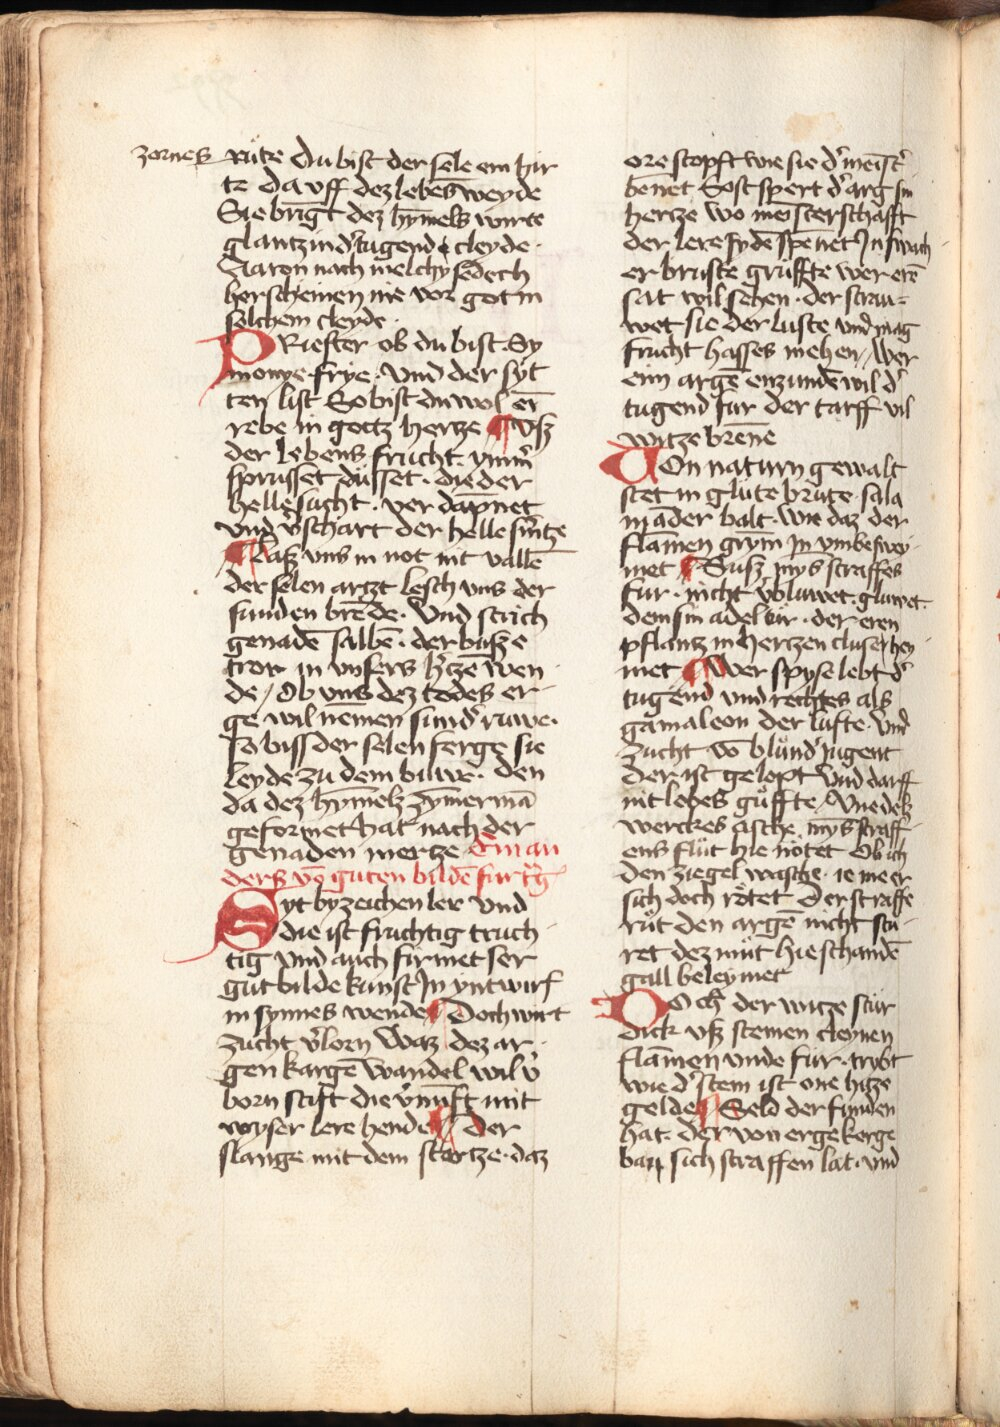 zornes rute du bist der sele ein hir
te da vff dez lebens weyde
Sie bringt dez hymels wirte
glantz in d' tugend cleyde ·
Aaron nach melchysedech
herscheinen nie vor got in
solchem cleyde ·
PRiester ob du bist · Sy
monye · frye · Vnd der syt
ten list So bist du wol er
rebe in gottz hertze Vß
der lebens frucht · vnd
sprusset dusset · die der
helle sucht · verdapnet
vnd v'schart der helle smtze
Laß vns in not nit vallē
der selen artzt lesch vns der
sunden brende · Vnd strich
genadē salbē · der busße
tror in vnsers h'tze wen
de / Ob vns dez todes er
ge wil nēmen sund' ruwe ·
so biss der selen ferge sie
leyde zu dem buwe · den
da dez hymelz zymermā
geformet hat nach der
genaden mertze Ein an
ders vō guten bildē furtrag
Syt by zeichen ler vnd
die ist fruchtig truch
tig vnd auch firmet ser
gut bilde kunst Jn yntwirf
in synnes wende Doch wirt
zucht v'lorn waz dez ar
gen kargē wandel wil v'
born stift die v'nunft mit
wyser lere hende der
slange mit dem stertze · daz
ore stopft wie sie d' meist'
bēnet Sost spert d' arg sin
hertze wo meisterschafft
der lere fydē spēnet Jn swach
er bruste gruffte wer erē
sat wil sehen · der strau=
wet sie der luste vnd mag
frucht hasses mehen / wer
einn argē enzundē wil d'
tugend fur der tarff vil
witze brēne
Von naturn gewalt
stet in glute brute · sala
mander balt · wie daz der
flāmen grym in vmbeswei
met Suß mys straffes
fur · nicht voluwet · gluwet ·
dem sin adel kur · der eren
pflantz in hertzen cluse hey
met Wer spyse lebt d'
tugend vnd rechtes als
gamaleon der lufte · vnd
zucht vō blund' jugent
der ist gelopt Vnd darff
nit lebes guffte / Vnedels
werckes asche mys straff
ens flut hie nötet Ob ich
den ziegel wasche · ie me er
sich doch rötet Der straffe
rut den argē nicht stu
ret dez mut hie schandē
gall beleymet
Doch der witze stur
dick vß steinen cleynen
flāmen vnde fur · trybt
wie d' stein ist one hitze
gelde Seld der funden
hat · der von erge kerge
ban sich straffen lat · vnd